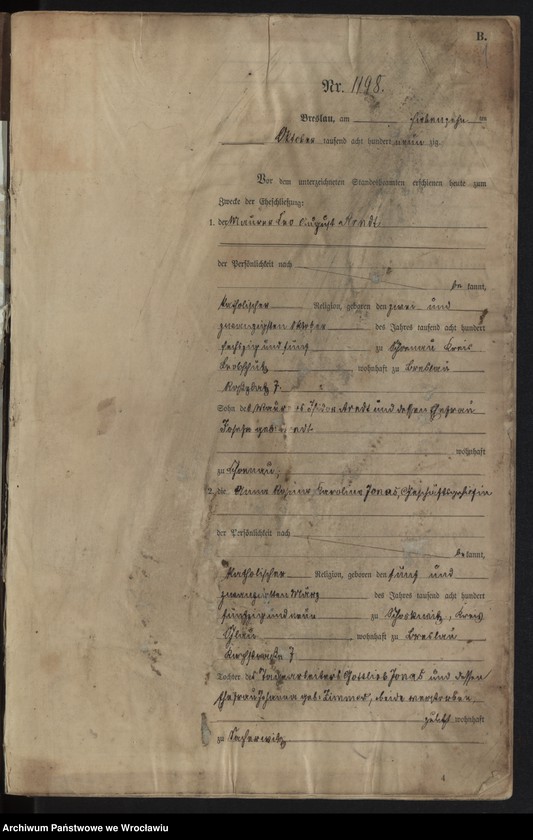 B.
Nr. 1198.
Breslau, am siebenzehn ten
Oktober tausend acht hundert neun zig
Vor dem unterzeichneten Standesbeamten erschienen heute zum
Zwecke der Eheschließung:
1. der Maurer Leo August Arndt
der Persönlichkeit nach
be kannt,
katholischer Religion, geboren den zwei und
zwanzigsten Oktober des Jahres tausend acht hundert
sechszig und fünf zu Schoenau Kreis
Leobschütz wohnhaft zu Breslau
7.
Sohn des Maurers Arndt und dessen Ehefrau
Josepha geb.
wohnhaft
zu Schoenau;
2. die Anna Karoline Jonas,
der Persönlichkeit nach
be kannt,
katholischer Religion, geboren den fünf und
zwanzigsten März des Jahres tausend acht hundert
fünfzig und neun zu Kreis
Ohlau wohnhaft zu Breslau
Kirchstraße 7
Tochter des Gottlieb Jonas und dessen
Ehefrau Johanna geb. beide verstorben
wohnhaft
zu
4
Archiwum Państwowe we Wrocławiu